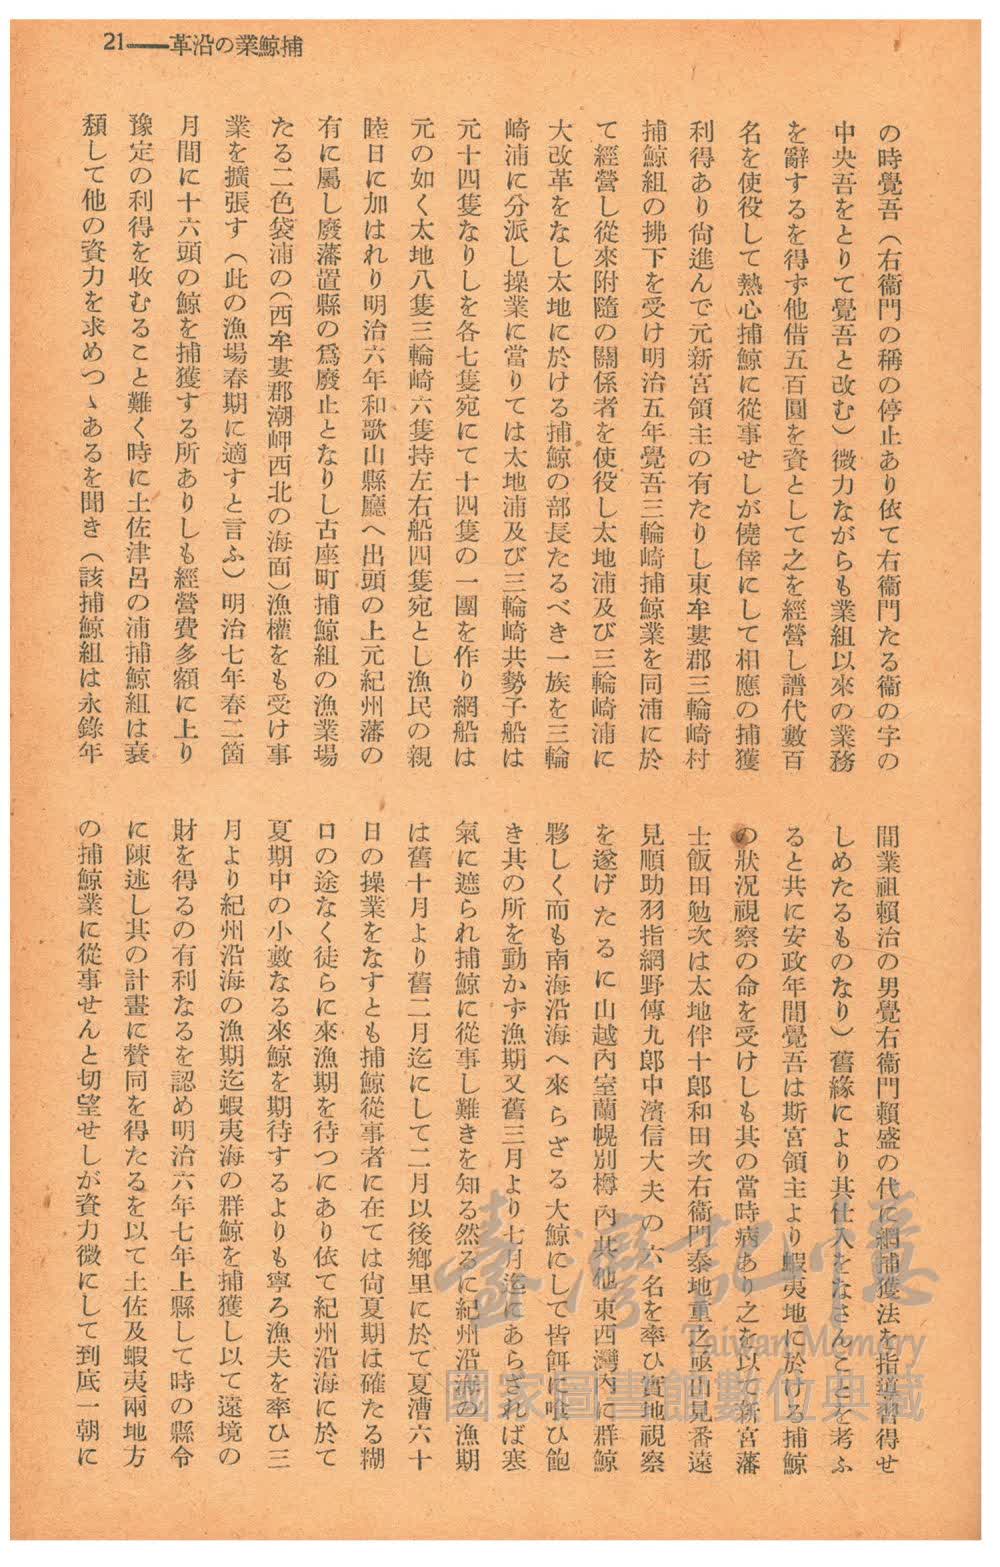 捕鯨業の沿革――21
の時覺吾（右衞門の稱の停止あり依て右衞門たる衞の字の
中央吾をとりて覺吾と改む）微力ながらも業組以來の業務
を辭するを得ず他借五百圓を資として之を經營し譜代數百
名を使役して熱心捕鯨に從事せしが僥倖にして相應の捕獲
利得あり尙進んで元新宮領主の有たりし東牟婁郡三輪崎村
捕鯨組の拂下を受け明治五年覺吾三輪崎捕鯨業を同浦に於
て經營し從來附隨の關係者を使役し太地浦及び三輪崎浦に
大改革をなし太地に於ける捕鯨の部長たるべき一族を三輪
崎浦に分派し操業に當りては太地浦及び三輪崎共勢子船は
元十四隻なりしを各七隻宛にて十四隻の一團を作り網船は
元の如く太地八隻三輪崎六隻持左右船四隻宛とし漁民の親
睦日に加はれり明治六年和歌山縣廳へ出頭の上元紀州藩の
有に屬し廢藩置縣の爲廢止となりし古座町捕鯨組の漁業場
たる二色袋浦の（西牟婁郡潮岬西北の海面）漁權をも受け事
業を擴張す（此の漁場春期に適すと言ふ）明治七年春二箇
月間に十六頭の鯨を捕獲する所ありしも經營費多額に上り
豫定の利得を收むること難く時に土佐津呂の浦捕鯨組は衰
頽して他の資力を求めつゝあるを聞き（該捕鯨組は永錄年
間業祖賴治の男覺右衞門賴盛の代に網捕獲法を指導習得せ
しめたるものなり）舊緣により其仕入をなさんことを考ふ
ると共に安政年間覺吾は斯宮領主より蝦夷地に於ける捕鯨
の狀況視察の命を受けしも其の當時病あり之を以て新宮藩
士飯田勉次は太地伴十郎和田次右衞門泰地重之亟山見番遠
見順助羽指網野傳九郎中濱信大夫の六名を率ひ實地視察
を遂げたるに山越內室蘭幌別樽內其他東西灣內に群鯨
夥しく而も南海沿海へ來らざる大鯨にして皆餌に喰ひ飽
き其の所を動かず漁期又舊三月より七月迄にあらざれば寒
氣に遮られ捕鯨に從事し難きを知る然るに紀州沿海の漁期
は舊十月より舊二月迄にして二月以後鄉里に於て夏漕六十
日の操業をなすとも捕鯨從事者に在ては尙夏期は確たる糊
口の途なく徒らに來漁期を待つにあり依て紀州沿海に於て
夏期中の小數なる來鯨を期待するよりも寧ろ漁夫を率ひ三
月より紀州沿海の漁期迄蝦夷海の群鯨を捕獲し以て遠境の
財を得るの有利なるを認め明治六年七年上縣して時の縣令
に陳述し其の計畫に贊同を得たるを以て土佐及蝦夷兩地方
の捕鯨業に從事せんと切望せしが資力微にして到底一朝に
臺灣記憶
Taiwan Memory
國家圖書館數位典藏